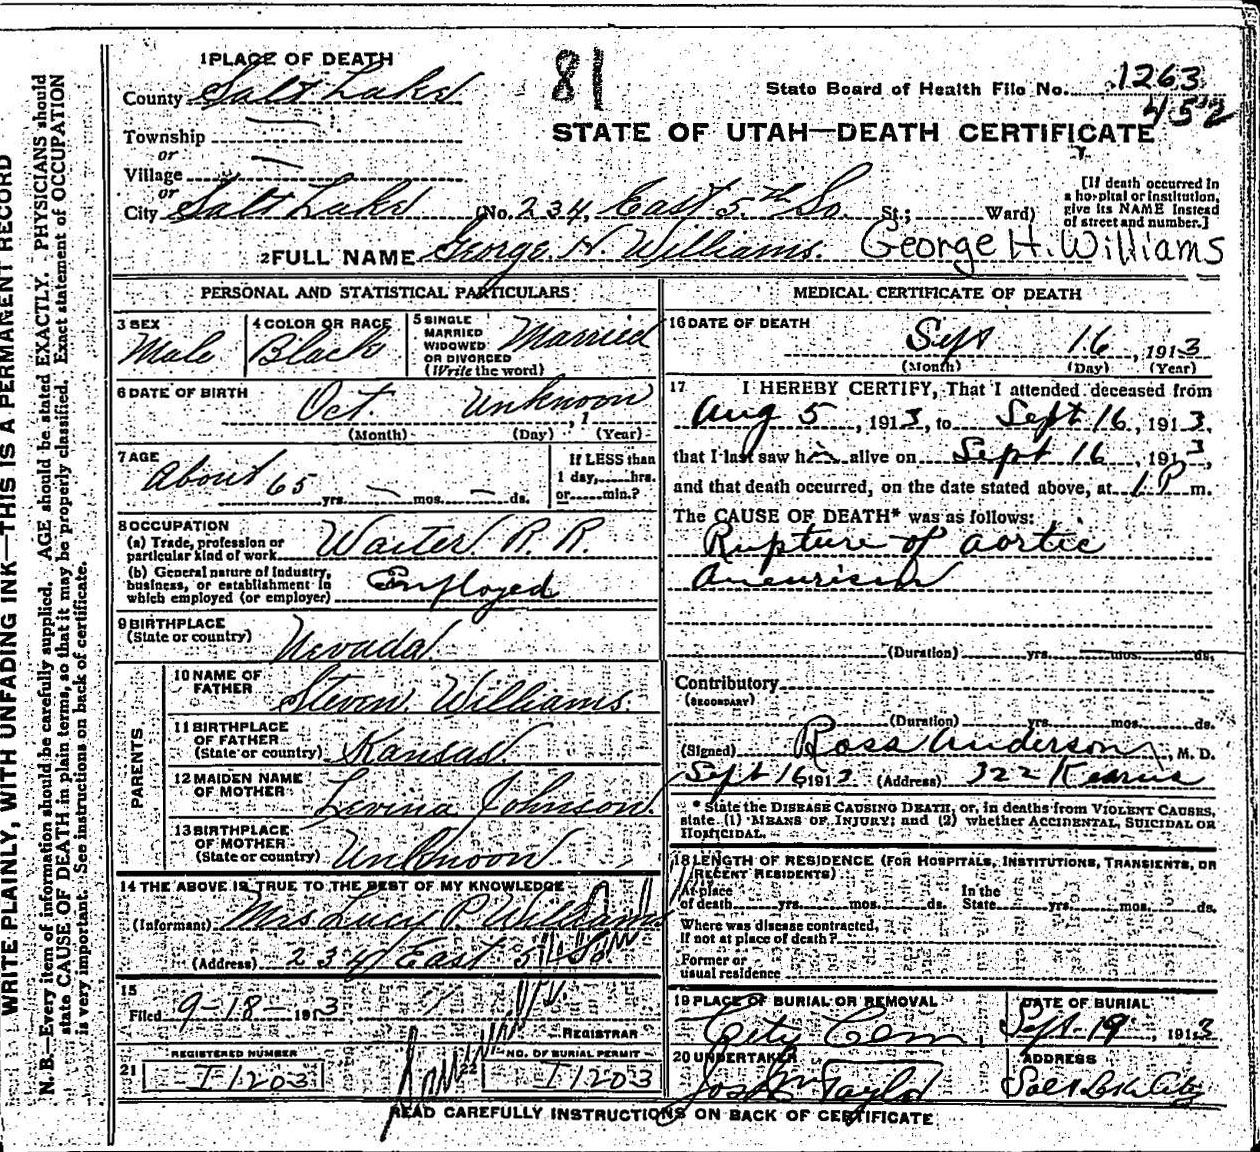 81
State Board of Health File No. 1263
452
STATE OF UTAH—DEATH CERTIFICATE
1 PLACE OF DEATH
County Salt Lake
Township
or
Village
or
City Salt Lake (No. 234, East 5th So. St.; Ward)
[If death occurred in
a hospital or institution,
give its NAME instead
of street and number.]
2 FULL NAME George H Williams. George H. Williams
PERSONAL AND STATISTICAL PARTICULARS
3 SEX
Male
4 COLOR OR RACE
Black
5 SINGLE
MARRIED
WIDOWED
OR DIVORCED
(Write the word)
Married
6 DATE OF BIRTH
Oct. Unknoon, 1
(Month) (Day) (Year)
7 AGE
About 65 yrs. — mos. — ds.
If LESS than
1 day, hrs.
or min.?
8 OCCUPATION
(a) Trade, profession or
particular kind of work Waiter R. R.
(b) General nature of Industry,
business, or establishment in
which employed (or employer) Employed
9 BIRTHPLACE
(State or country) Nevada
PARENTS
10 NAME OF
FATHER Steven Williams.
11 BIRTHPLACE
OF FATHER
(State or country) Kansas.
12 MAIDEN NAME
OF MOTHER Levina Johnson.
13 BIRTHPLACE
OF MOTHER
(State or country) Unknoon
14 THE ABOVE IS TRUE TO THE BEST OF MY KNOWLEDGE
(Informant) Mrs Lucy P. Williams
(Address) 234 East 5th So
15
Filed 9-18-1913
REGISTRAR
21
REGISTERED NUMBER
I1203
NO. OF BURIAL PERMIT
I1203
MEDICAL CERTIFICATE OF DEATH
16 DATE OF DEATH
Sept 16, 1913
(Month) (Day) (Year)
17 I HEREBY CERTIFY, That I attended deceased from
Aug 5, 1913, to Sept 16, 1913,
that I last saw him alive on Sept 16, 1913,
and that death occurred, on the date stated above, at 1 P m.
The CAUSE OF DEATH* was as follows:
Rupture of aortic
Aneurism
(Duration) yrs. mos. ds.
Contributory
(SECONDARY)
(Duration) yrs. mos. ds.
(Signed) Ross Anderson, M. D.
Sept 16 1913 (Address) 322 Kearns
* State the DISEASE CAUSING DEATH, or, in deaths from VIOLENT CAUSES,
state (1) MEANS OF INJURY; and (2) whether ACCIDENTAL, SUICIDAL OR
HOMICIDAL.
18 LENGTH OF RESIDENCE (FOR HOSPITALS, INSTITUTIONS, TRANSIENTS, OR
RECENT RESIDENTS)
At place
of death yrs. mos. ds.
In the
State yrs. mos. ds.
Where was disease contracted,
If not at place of death?
Former or
usual residence
19 PLACE OF BURIAL OR REMOVAL
City Cem
DATE OF BURIAL
Sept 19, 1913
20 UNDERTAKER
Jos Wm Taylor
ADDRESS
Salt Lake City
READ CAREFULLY INSTRUCTIONS ON BACK OF CERTIFICATE
WRITE PLAINLY, WITH UNFADING INK—THIS IS A PERMANENT RECORD
N. B.—Every item of information should be carefully supplied. AGE should be stated EXACTLY. PHYSICIANS should
state CAUSE OF DEATH in plain terms, so that it may be properly classified. Exact statement of OCCUPATION
is very important. See instructions on back of certificate.